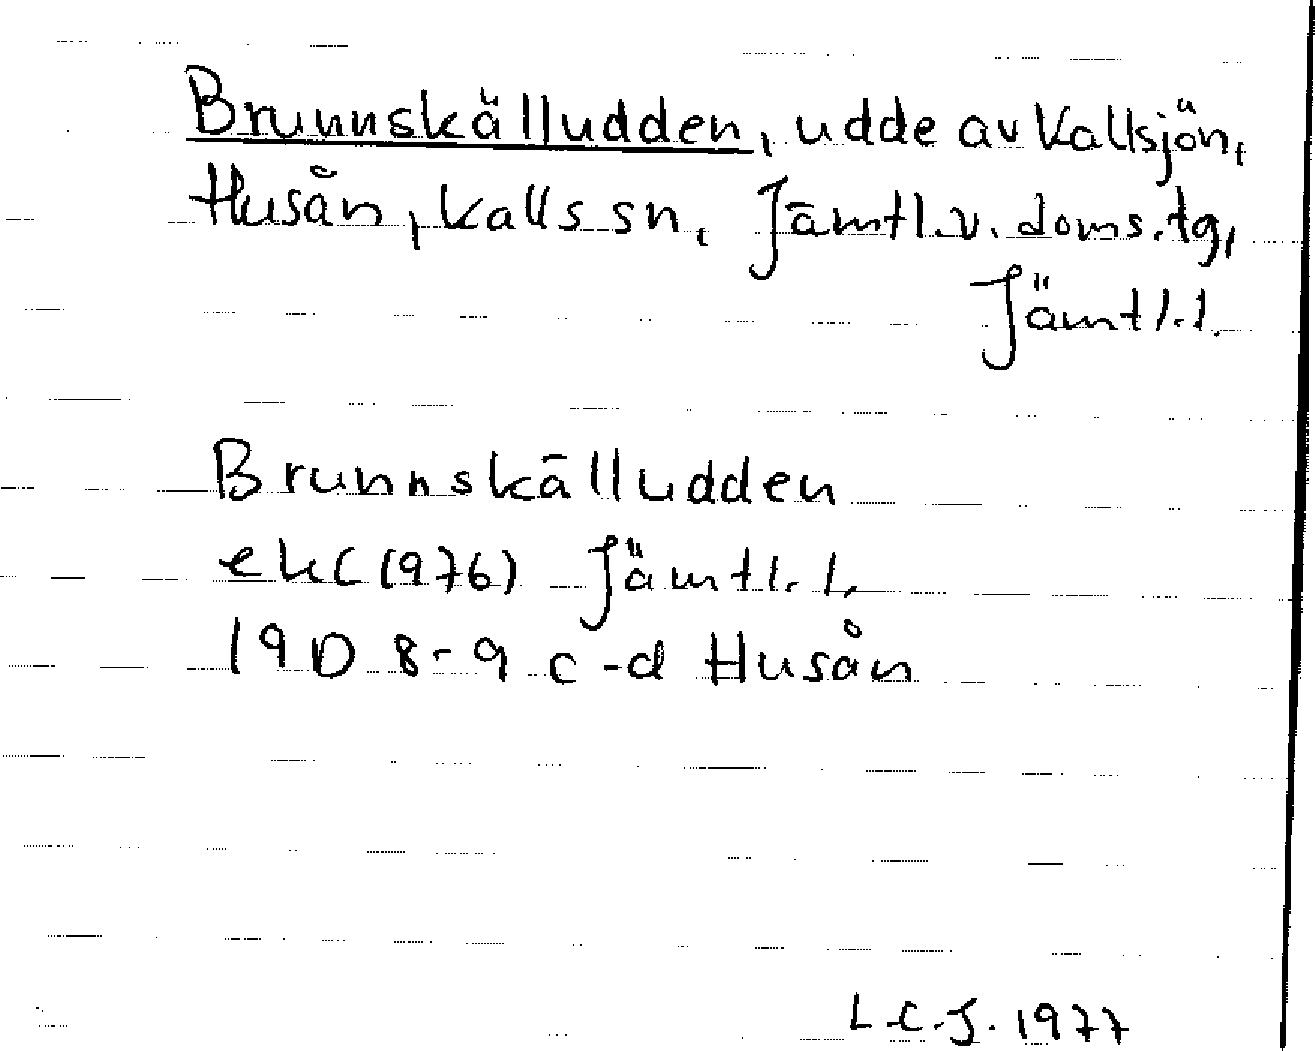 Brunnskälludden, udde av Kallsjön,
Husån, Kalls sn, Jämtl.v. doms.tg,
Jämtl.l.
Brunnskälludden
ek(1976) Jämtl.l.
19D 8-9 c-d Husån
L.C.J. 1977